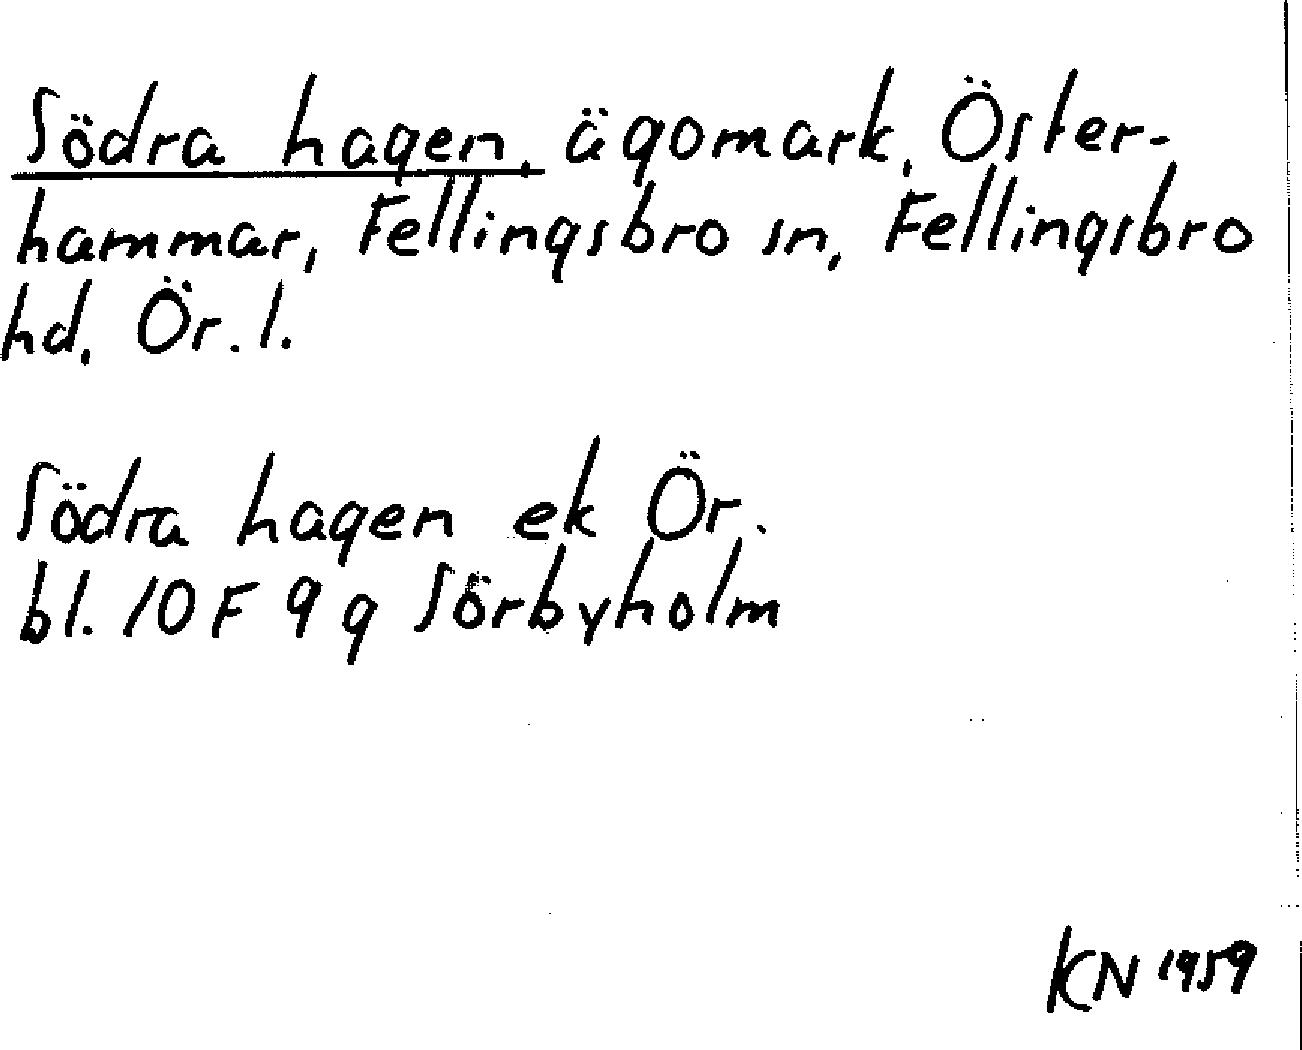 Södra hagen, ägomark, Öster-
hammar, Fellingsbro sn, Fellingsbro
hd, Ör. l.
Södra hagen ek Ör.
bl. 10 F 9 g Sörbyholm
KN 1959